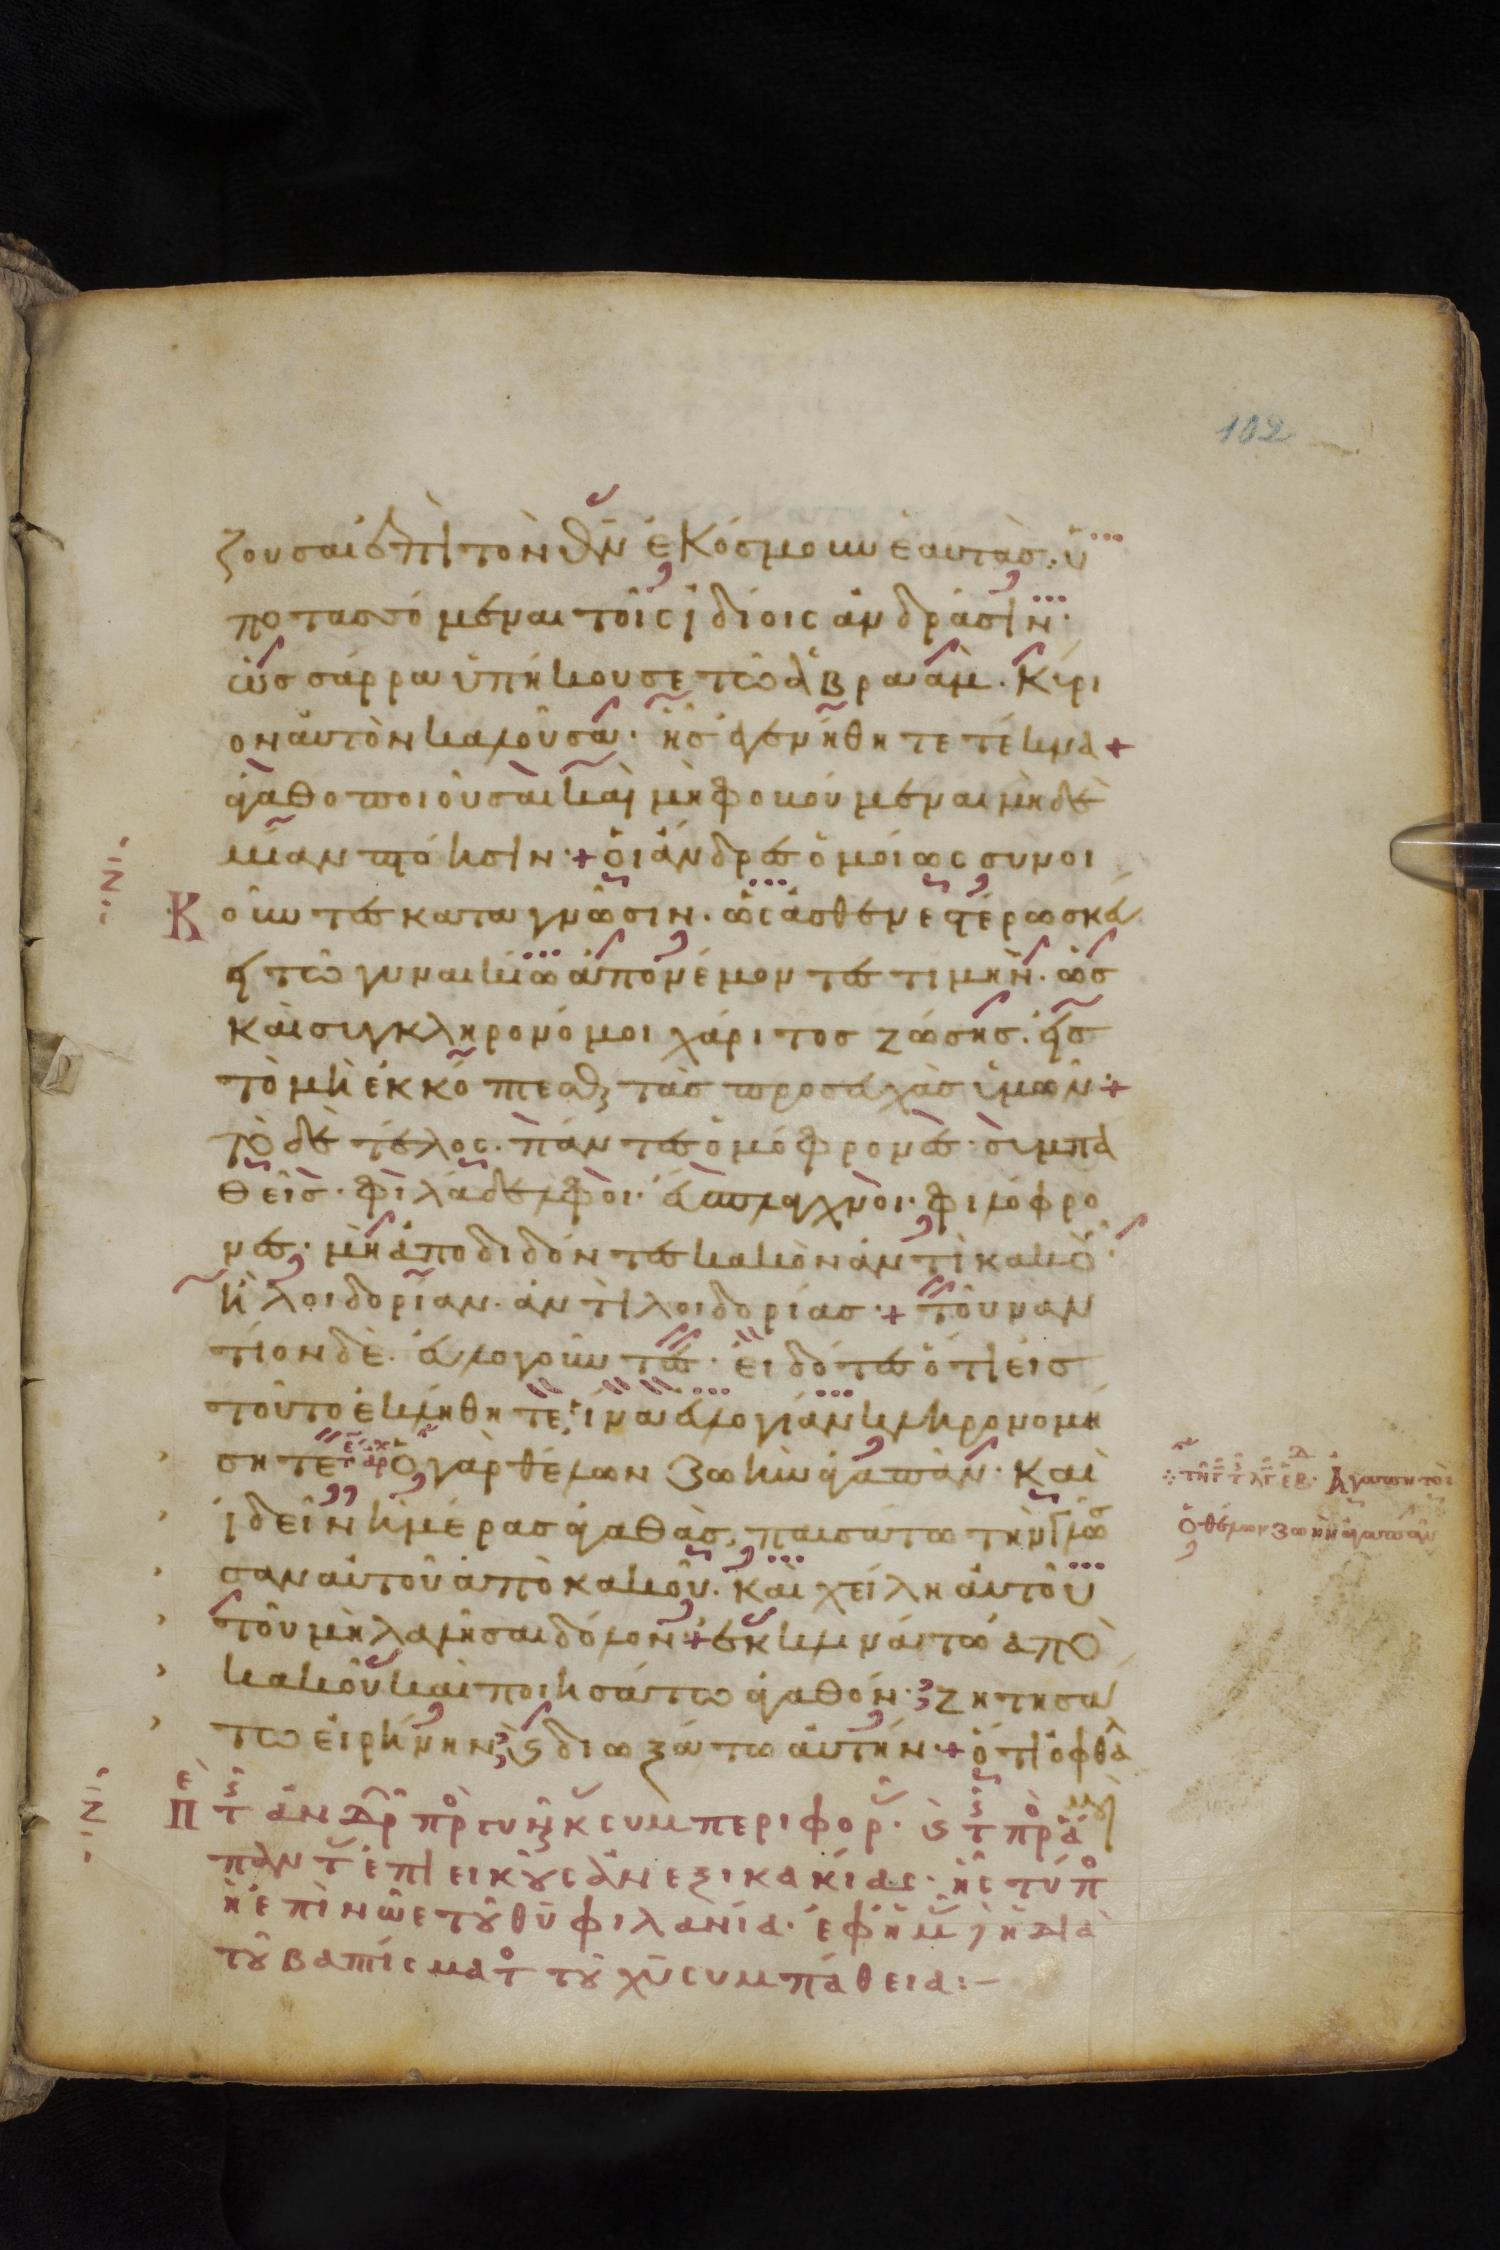 102
ζουσαι ἐπὶ τὸν θν̄ ἐκόσμουν ἑαυτάσ· ὑ
ποτασσόμεναι τοῖς ἰδίοις ἀνδράσιν·
ὡσ σάρρα ὑπήκουσε τῶ ἀβραάμ· κύρι
ον αὐτὸν καλοῦσα· ἧσ ἐγενήθητε τέκνα +
ἀγαθοποιοῦσαι καὶ μὴ φοβούμεναι μηδε
μίαν πτόησιν· + Οἱ ἄνδρες ὁμοίως συνοι
Κοῦντες κατα γνῶσιν· ὡς ἀσθενεστέρω σκεύ
ει τῶ γυναικίω ἀπονέμοντες τιμὴν· ὡσ
καὶ συγκληρονόμοι χάριτοσ ζώσησ· εἰσ
τὸ μὴ ἐκκόπτεσθαι τὰσ προσευχὰσ ὑμῶν· +
τὸ δὲ τέλος· πάντες ὁμόφρονες· συμπα
θεῖσ· φιλάδελφοι· εὔσπλαγχνοι· φιλόφρο
νες· μὴ ἀποδιδόντες κακὸν ἀντὶ κακοῦ·
ἢ λοιδορίαν· ἀντὶ λοιδορίασ· + τοὐναν
τίον δὲ· εὐλογοῦντες· εἰδότες ὅτι εἰσ
τοῦτο ἐκλήθητε· ἵνα εὐλογίαν κληρονομή
σητε Ὁ γὰρ θέλων ζωὴν ἀγαπᾶν· καὶ
ἰδεῖν ἡμέρασ ἀγαθὰσ, παυσάτω τὴν γλῶσ
σαν αὐτοῦ ἀπὸ κακοῦ· καὶ χείλη αὐτοῦ
τοῦ μὴ λαλῆσαι δόλον· + ἐκκλινάτω ἀπὸ
κακοῦ καὶ ποιησάτω ἀγαθόν· ζητησά
τω εἰρήνην καὶ διωξάτω αὐτήν· + ὅτι ὀφθαλ
μοὶ
Ἀγαπητοὶ
ὁ θέλων ζωὴν ἀγαπᾶν
πᾶντ ἐπιεικοῦς ἀνεξικακίας· ἧς τύπ
τοῦ βαπτίσματ τοῦ χῡ συμπάθεια:–